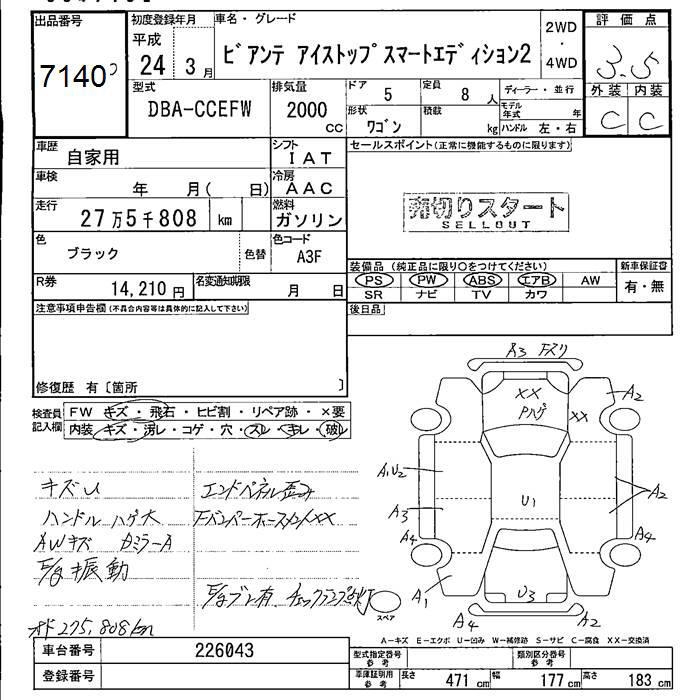 出品番号 初度登録年月 車名・グレード 2WD・4WD 評価点
7140
平成 24 3月
ビアンテ アイストップスマートエディション2
3.5
型式 排気量 ドア 5 定員 8人 ディーラー・並行 外装 内装
DBA-CCEFW 2000cc 形状 ワゴン 積載 kg モデル年式 年 ハンドル 左・右 C C
車歴 自家用 シフト IAT セールスポイント(正常に機能するものに限ります)
車検 年 月( 日) 冷房 AAC
走行 27万5千808 km 燃料 ガソリン
売切りスタート
SELLOUT
色 ブラック 色替 色コード A3F
装備品 (純正品に限り○をつけてください) 新車保証書
PS PW ABS エアB AW 有・無
SR ナビ TV カワ
R券 14,210円 名変通知期限 月 日
後日品
注意事項申告欄(不具合内容等は具体的に記入して下さい)
修復歴 有〔箇所 〕
検査員記入欄 FW キズ・飛石・ヒビ割・リペア跡・×要
内装 キズ・汚レ・コゲ・穴・スレ・キレ・破レ
キズU エンドパネル歪み
ハンドル ハゲ大 FバンパーホースメンXX
AWキズ カミラーA
E/g振動
E/gブレ有 チェックランプ点灯
オド 275,808km
A3 Fスリ
XX
Pハゲ
XX
A2
A1U2
U1
A2
A3
A4
A4
A1
U3
A4
A2
スペア
A―キズ E―エクボ U―凹み W―補修跡 S―サビ C―腐食 XX―交換済
車台番号 226043 型式指定番号 参考 類別区分番号 参考
登録番号 車庫証明用 参考 長さ 471cm 幅 177cm 高さ 183cm